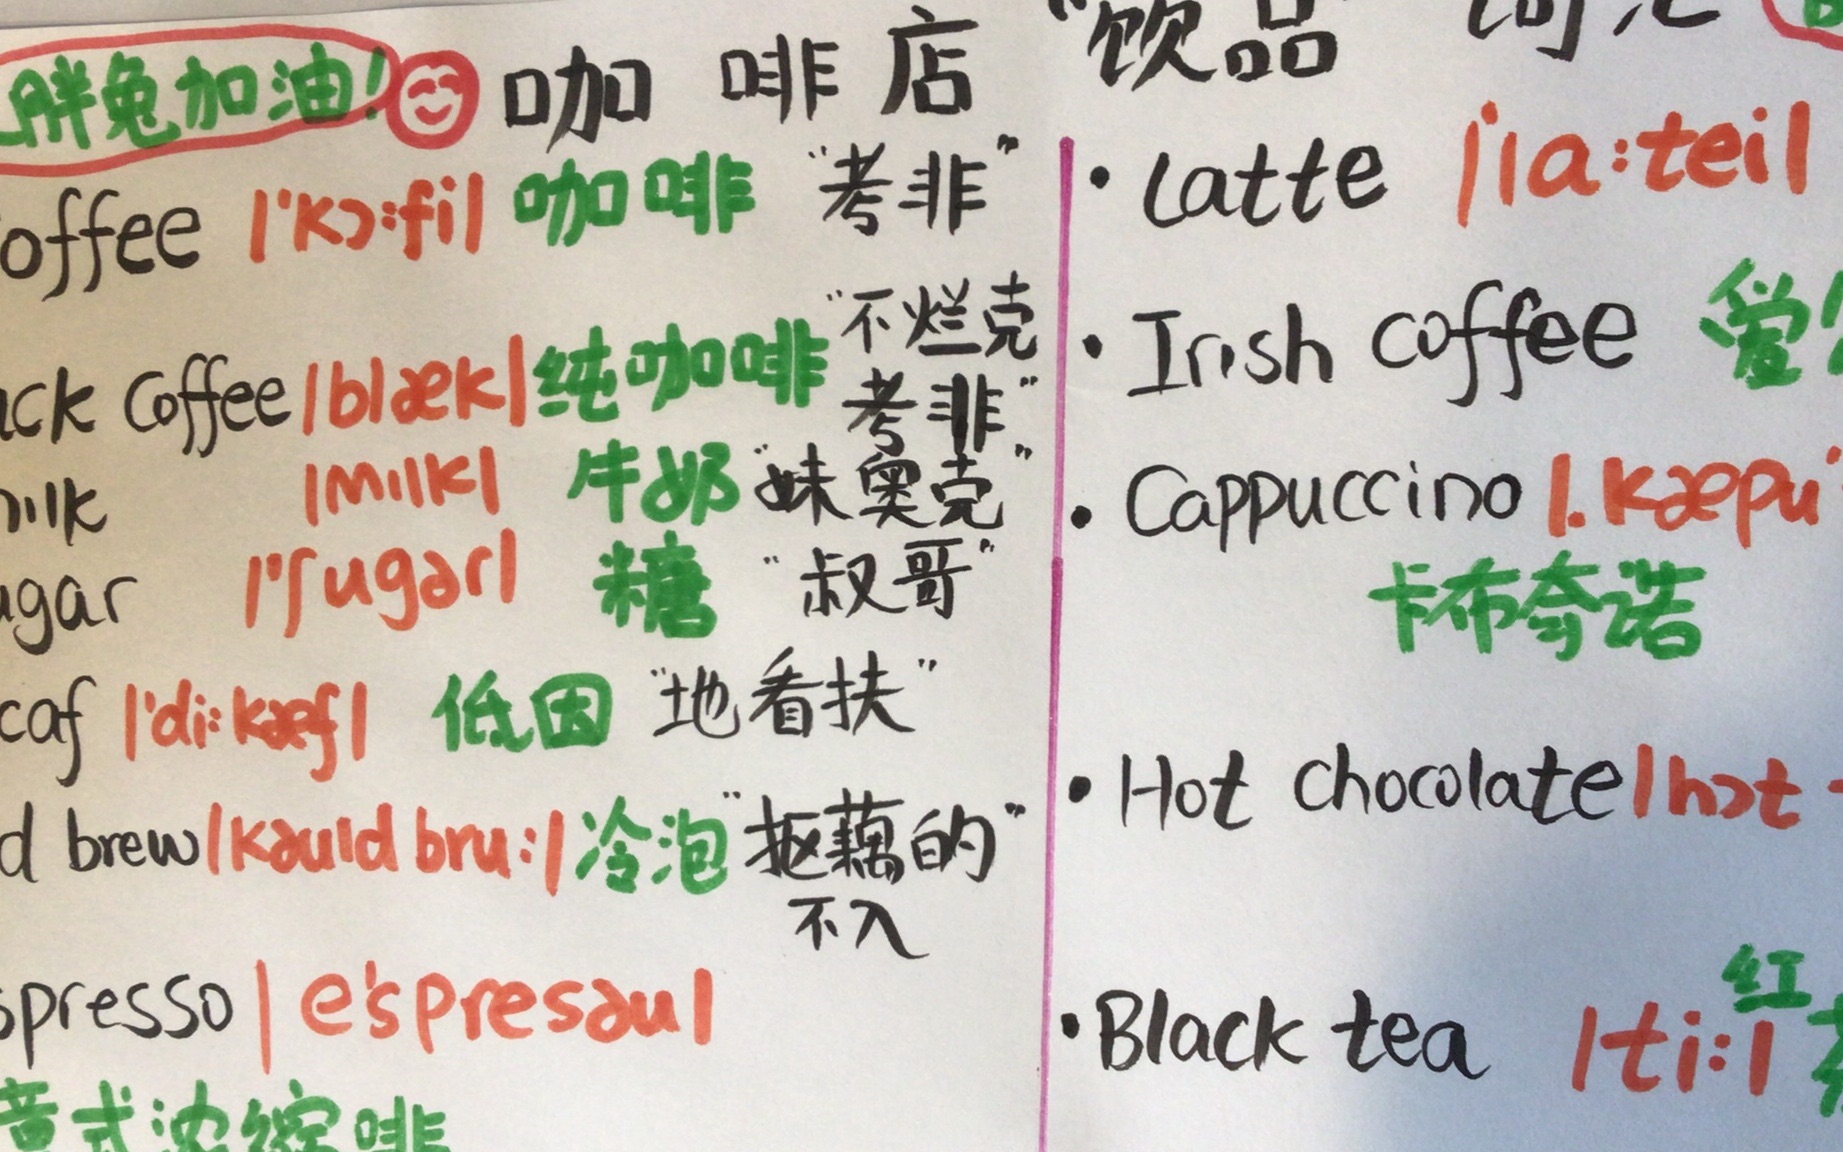 胖兔加油! 咖啡店 "饮品" 词汇
offee |'kɔ:fi| 咖啡 "考非"
ack Coffee |blæk| 纯咖啡 "不烂克
考非"
milk |mɪlk| 牛奶 "妹奥克"
ugar |'ʃugər| 糖 "叔哥"
caf |'di:kæf| 低因 "地看扶"
d brew |kəuld bru:| 冷泡 "抠藕的"
不入
spresso | e'spresəu|
意式浓缩啡
• Latte |'la:tei|
• Irish coffee 爱
• Cappuccino |.kæpu'
卡布奇诺
• Hot chocolate |hɔt -
• Black tea |ti:| 红